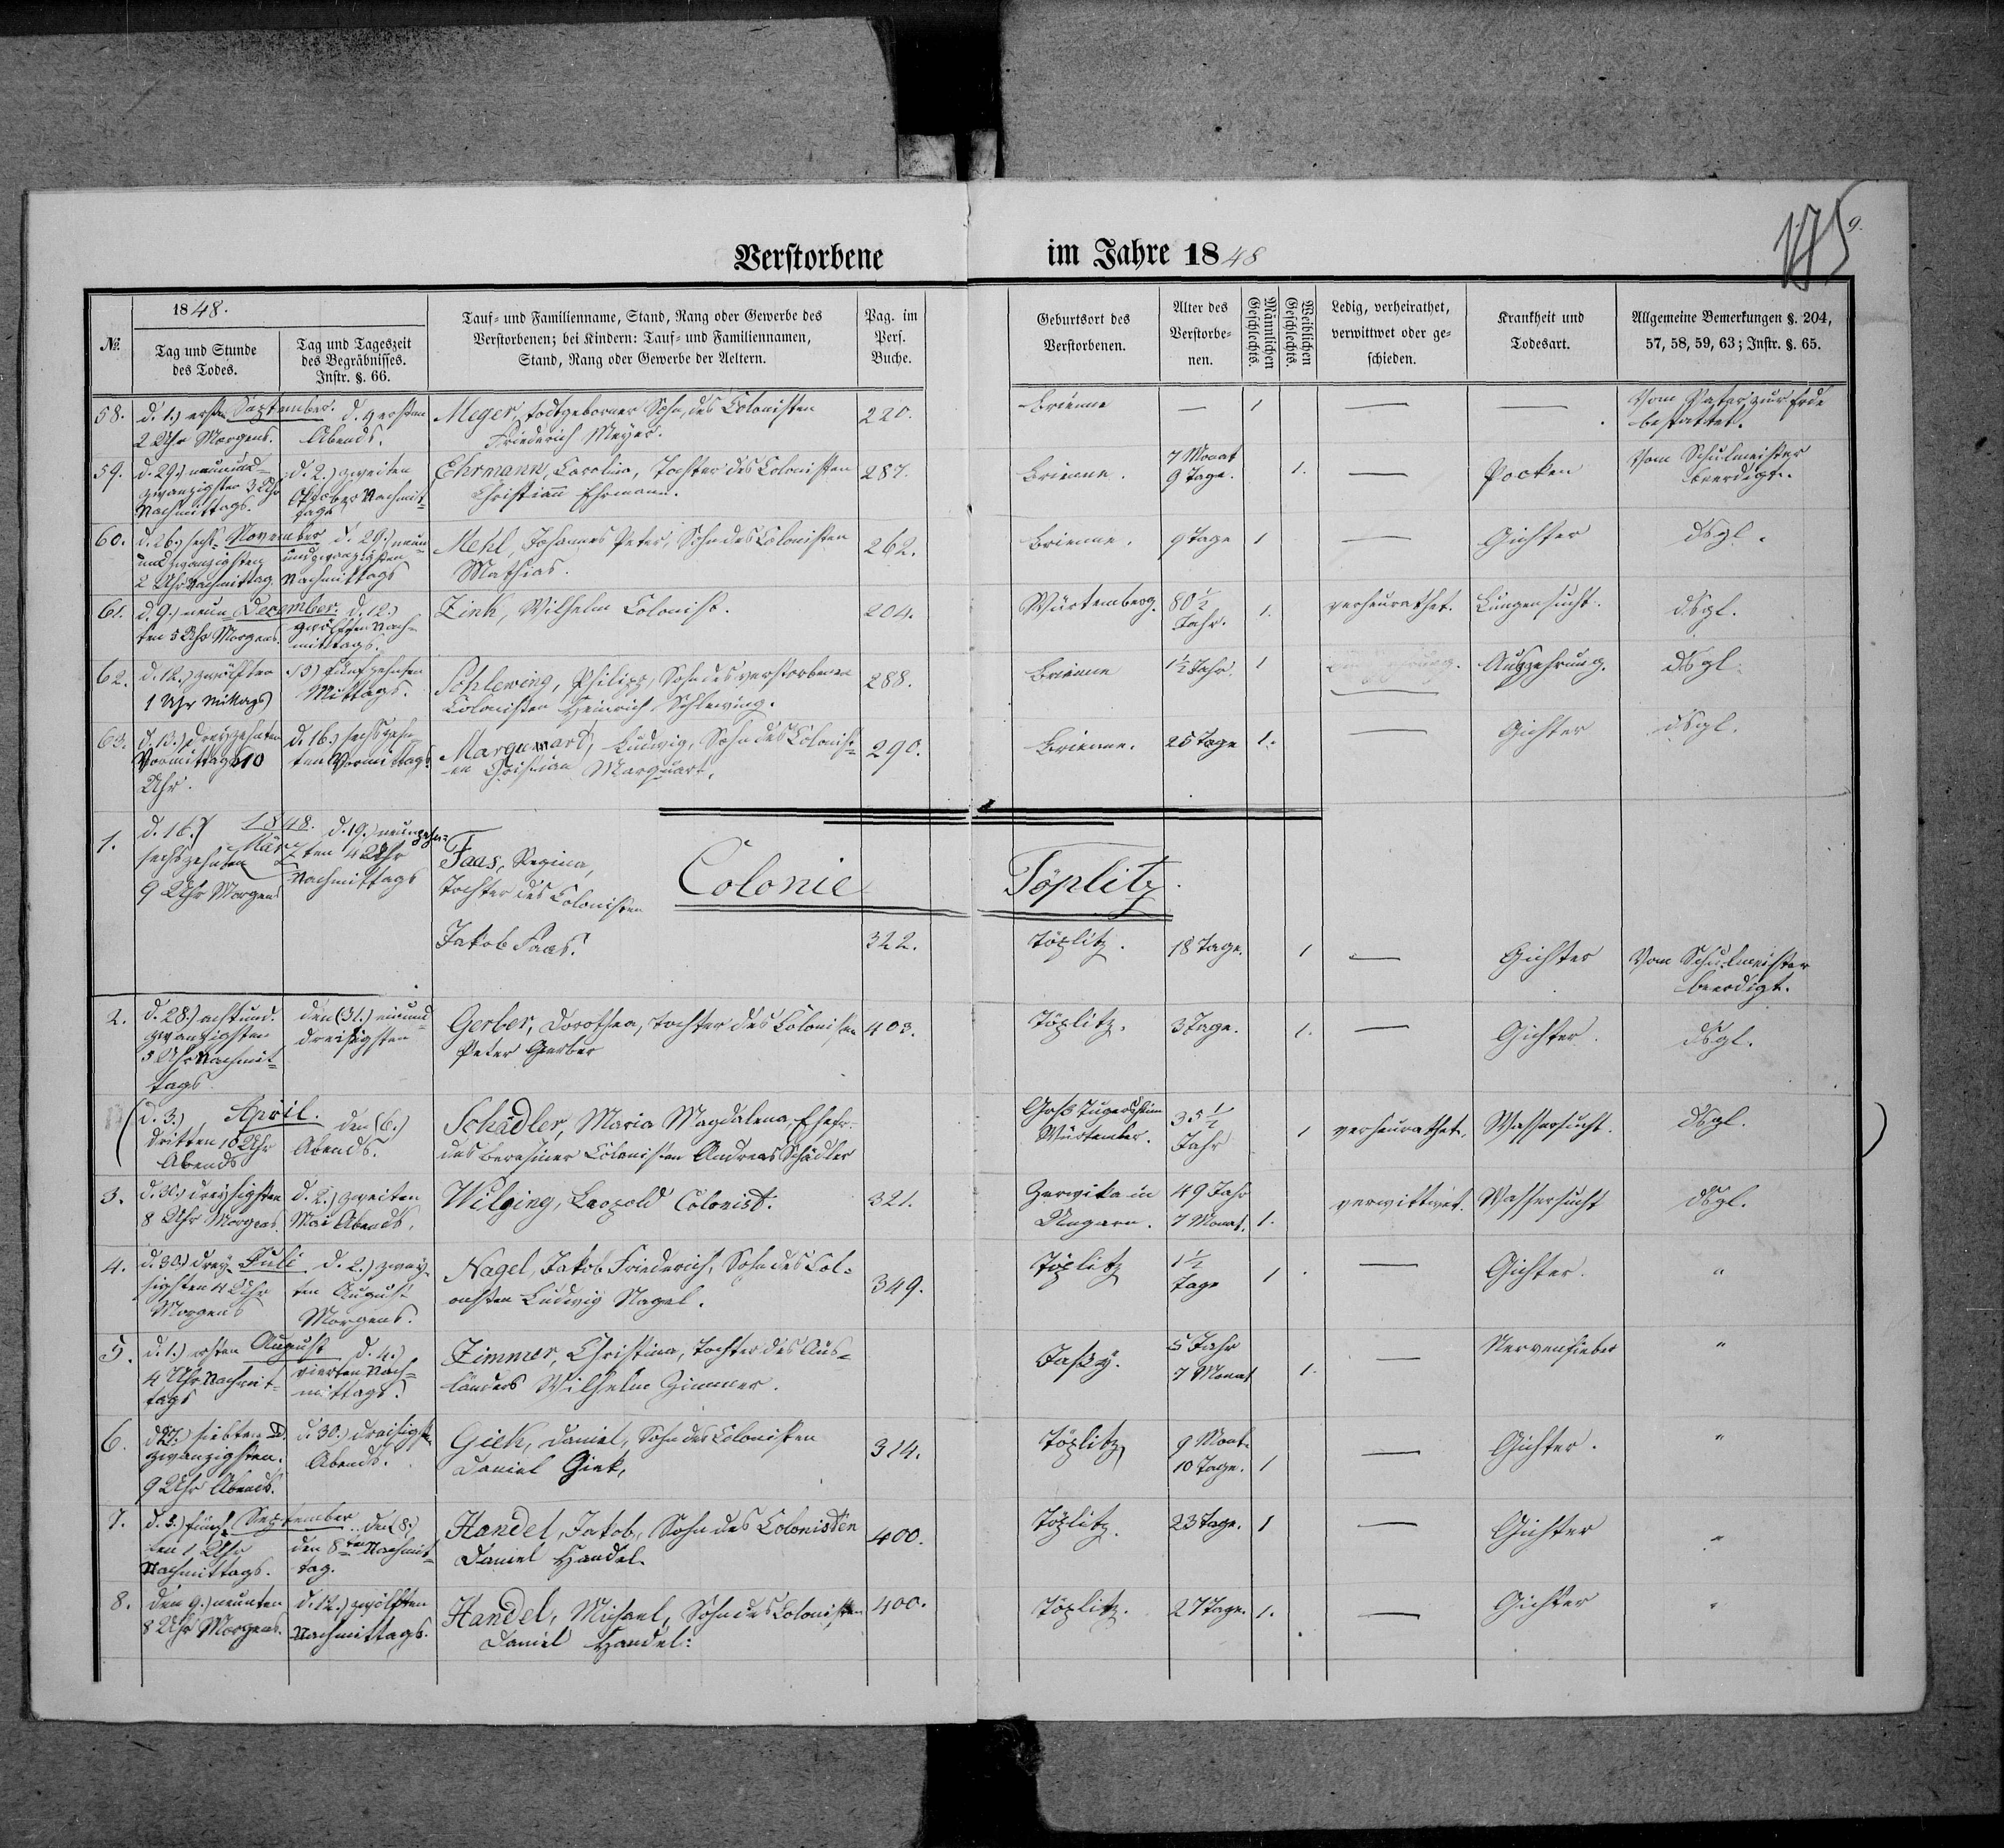 175
9.
Verstorbene im Jahre 1848
№.
1848.
Tag und Stunde
des Todes.
Tag und Tageszeit
des Begräbnisses.
Instr. §. 66.
Tauf- und Familienname, Stand, Rang oder Gewerbe des
Verstorbenen; bei Kindern: Tauf- und Familiennamen,
Stand, Rang oder Gewerbe der Aeltern.
Pag. im
Pers.
Buche.
Geburtsort des
Verstorbenen.
Alter des
Verstorbe-
nen.
Männlichen
Geschlechts.
Weiblichen
Geschlechts.
Ledig, verheirathet,
verwittwet oder ge-
schieden.
Krankheit und
Todesart.
Allgemeine Bemerkungen §. 204,
57, 58, 59, 63; Instr. §. 65.
58. d. 1.) ersten September.
2 Uhr Morgens.
d. 4 ersten
Abends.
Meyer, todtgeborner Sohn, des Colonisten
Friederich Meyer.
220.
Brienne
—
1
—
—
Vom Vater zur Erde
bestattet.
59. d. 29.) neunund-
zwanzigsten 3 Uhr
Nachmittags.
d. 2.) zweiten
October Nachmit-
tags
Ehrmann, Carolina, Tochter des Colonisten
Christian Ehrmann.
287.
Brienne.
7 Monat
9 Tage.
1.
—
Pocken
Vom Schulmeister
beerdigt.
60. d. 26.) sechs- November
und zwanzigsten
2 Uhr Nachmittag
d. 29.) neun-
undzwanzigsten
Nachmittags
Mehl, Johannes Peter, Sohn des Colonisten
Mathias.
262.
Brienne.
9 Tage
1
—
Gichter
dsgl.
61. d. 9.) neun December.
ten 5 Uhr Morgens.
d. 12.)
zwölften Nach-
mittags.
Zink, Wilhelm Colonist.
204.
Würtemberg.
80 ½
Jahr.
1.
verheurathet.
Lungensucht.
dsgl.
62. d. 12.) zwölften
1 Uhr Mittags)
15) Fünfzehnten
Mittags.
Schlewing, Philipp, Sohn des verstorbenen
Colonisten Heinrich Schlewing.
288.
Brienne
1½ Jahr.
1
—
Auszehrung.
dsgl.
63. d. 13.) dreyzehnten
Vormittags 10
Uhr.
d. 16.) sechszehn-
ten Vormittags.
Marquart, Ludwig, Sohn des Colonist-
en Christian Marquart.
290.
Brienne.
25 Tage
1.
—
Gichter
dsgl.
Colonie Töplitz.
1848.
März
1. d. 16.)
sechszehnten
9 Uhr Morgens
d. 19.) neunzehn-
ten 4 Uhr
Nachmittags
Faas, Regina,
Tochter des Colonisten
Jakob Faas.
322.
Töplitz.
18 Tage.
1
—
Gichter
Vom Schulmeister
beerdigt.
2. d. 28.) achtund-
zwanzigsten
5 Uhr Nachmit-
tags
den (31.) einund-
dreisigsten
Gerber, Dorothea, Tochter des Colonisten
Peter Gerber
403.
Töplitz.
3 Tage.
1.
—
Gichter.
dsgl.
(d. 3.) April.
dritten 10 Uhr
Abends
den (6.)
Abends.
Schädler, Maria Magdalena, Ehefr.
des Beresiner Colonisten Andreas Schädler
Würtember.
35 ½
Jahr
1
verheurathet.
Wassersucht.
dsgl.
)
3. d. 30.) dreysigsten
8 Uhr Morgens.
d. 2.) zweiten
Mai Abends.
Wilging, Leopold Colonist.
321.
Zerwika in
Ungarn.
49 Jahr
7 Monat.
1.
verwittwet.
Wassersucht
dsgl.
4. d. 30.) drey- Juli
sigsten 4 Uhr
Morgens
d. 2.) zwey-
ten August
Morgens.
Nagel, Jakob Friederich, Sohn des Col-
onisten Ludwig Nagel.
349.
Töplitz
1½
Tage
1
—
Gichter.
"
5. d. 1.) ersten August
4 Uhr Nachmit-
tags
d. 4.)
vierten Nach-
mittags.
Zimmer, Christina, Tochter des Aus-
länders Wilhelm Zimmer.
Jassy.
5 Jahr
7 Monat
1.
—
Nervenfieber
"
6. d. 27.) siebten u.
zwanzigsten.
9 Uhr Abends.
d. 30.) dreisigst
Abends.
Giek, Daniel, Sohn des Colonisten
Daniel Giek,
314.
Töplitz
9 Mont.
10 Tage.
1
—
Gichter.
"
7. d. 5.) fünf- September
ten 1 Uhr
Nachmittags.
den (8.)
den 8ten Nachmit-
tag.
Handel, Jakob, Sohn des Colonisten
Daniel Handel.
400.
Töplitz.
23 Tage.
1
—
Gichter
"
8. den 9.) neunten
8 Uhr Morgens.
d. 12.) zwölften
Nachmittags.
Handel, Michael, Sohn des Colonisten
Daniel Handel:
400.
Töplitz.
27 Tage.
1.
—
Gichter
"